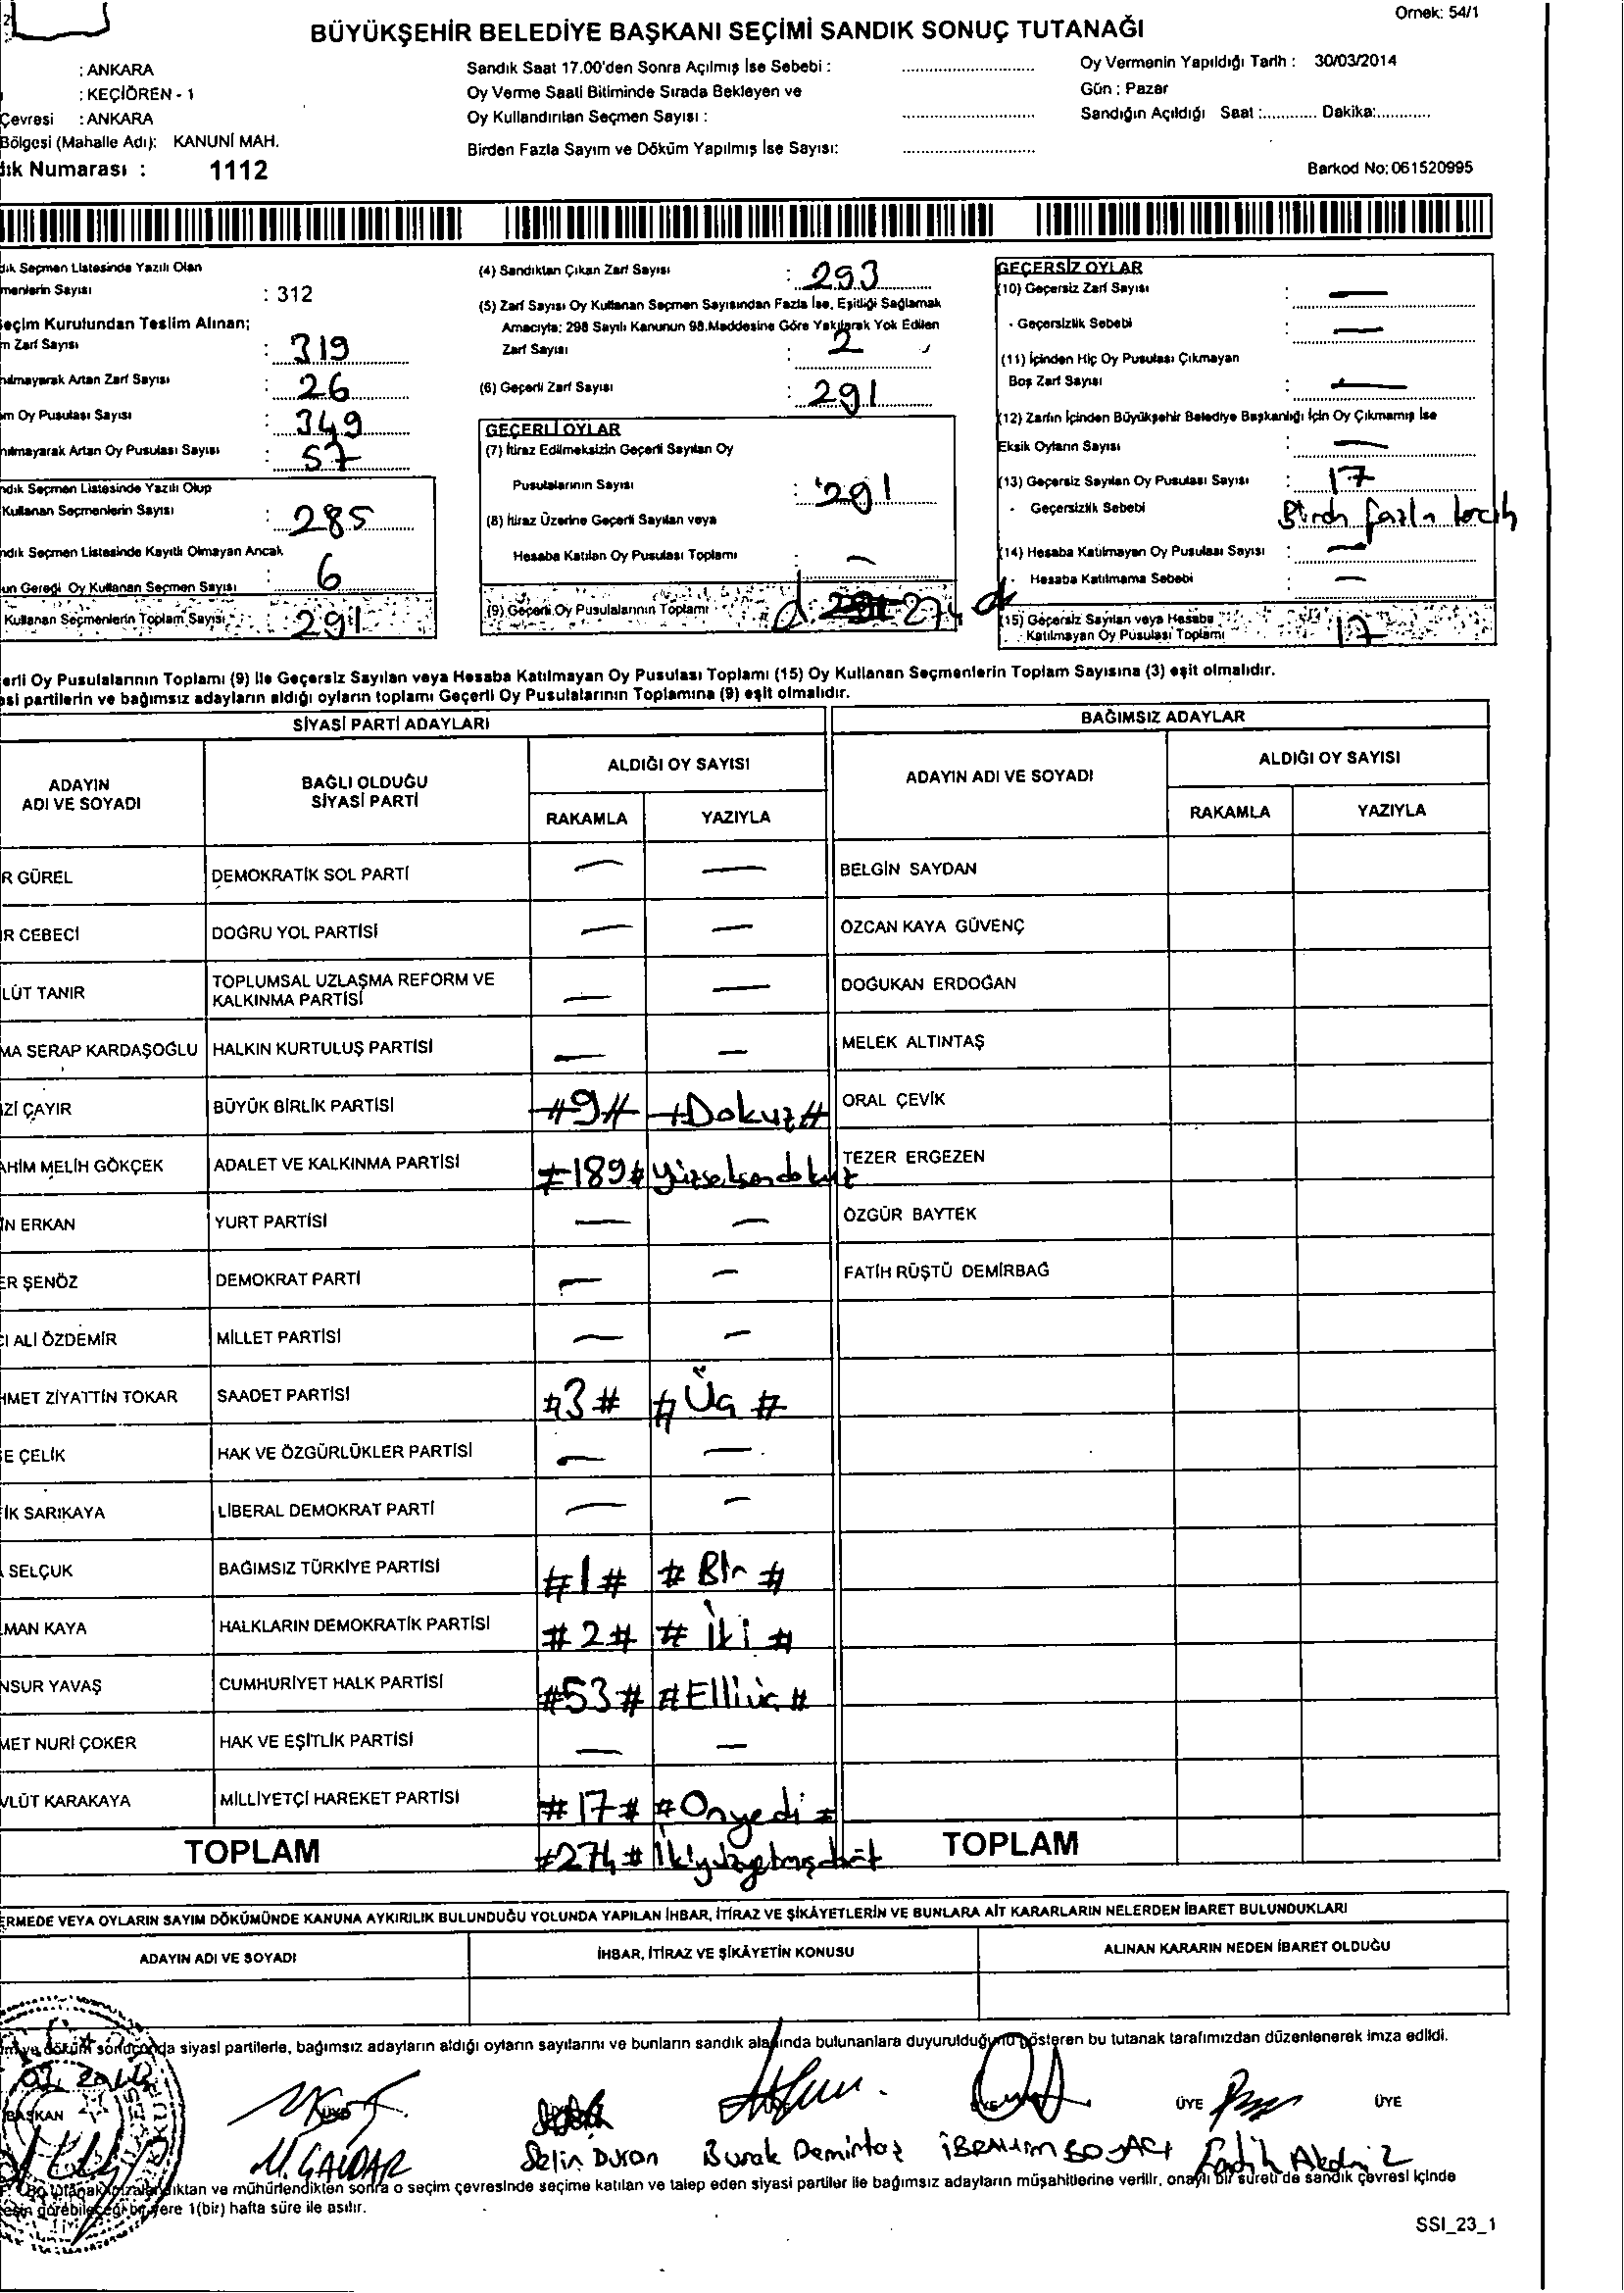 Örnek: 54/1
BÜYÜKŞEHİR BELEDİYE BAŞKANI SEÇİMİ SANDIK SONUÇ TUTANAĞI
: ANKARA
: KEÇİÖREN - 1
Çevresi : ANKARA
Bölgesi (Mahalle Adı): KANUNİ MAH.
dık Numarası : 1112
Sandık Saat 17.00'den Sonra Açılmış İse Sebebi :
Oy Verme Saati Bitiminde Sırada Bekleyen ve
Oy Kullandırılan Seçmen Sayısı :
Birden Fazla Sayım ve Döküm Yapılmış İse Sayısı:
Oy Vermenin Yapıldığı Tarih : 30/03/2014
Gün : Pazar
Sandığın Açıldığı Saat :............ Dakika:............
Barkod No: 061520995
dık Seçmen Listesinde Yazılı Olan
menlerin Sayısı : 312
eçim Kurulundan Teslim Alınan;
m Zarf Sayısı : 319
nılmayarak Artan Zarf Sayısı : 26
am Oy Pusulası Sayısı : 349
nılmayarak Artan Oy Pusulası Sayısı : 57
ndık Seçmen Listesinde Yazılı Olup
Kullanan Seçmenlerin Sayısı : 285
ndık Seçmen Listesinde Kayıtlı Olmayan Ancak
un Gereği Oy Kullanan Seçmen Sayısı : 6
Kullanan Seçmenlerin Toplam Sayısı : 291
(4) Sandıktan Çıkan Zarf Sayısı : 293
(5) Zarf Sayısı Oy Kullanan Seçmen Sayısından Fazla İse, Eşitliği Sağlamak
Amacıyla; 298 Sayılı Kanunun 98.Maddesine Göre Yakılarak Yok Edilen
Zarf Sayısı : 2
(6) Geçerli Zarf Sayısı : 291
GEÇERLİ OYLAR
(7) İtiraz Edilmeksizin Geçerli Sayılan Oy
Pusulalarının Sayısı : 291
(8) İtiraz Üzerine Geçerli Sayılan veya
Hesaba Katılan Oy Pusulası Toplamı : —
(9) Geçerli Oy Pusulalarının Toplamı : 274
GEÇERSİZ OYLAR
(10) Geçersiz Zarf Sayısı : —
- Geçersizlik Sebebi : —
(11) İçinden Hiç Oy Pusulası Çıkmayan
Boş Zarf Sayısı : —
(12) Zarfın İçinden Büyükşehir Belediye Başkanlığı İçin Oy Çıkmamış İse
Eksik Oyların Sayısı : —
(13) Geçersiz Sayılan Oy Pusulası Sayısı : 17
- Geçersizlik Sebebi : Birden fazla tercih
(14) Hesaba Katılmayan Oy Pusulası Sayısı : —
- Hesaba Katılmama Sebebi : —
(15) Geçersiz Sayılan veya Hesaba
Katılmayan Oy Pusulası Toplamı : 17
erli Oy Pusulalarının Toplamı (9) ile Geçersiz Sayılan veya Hesaba Katılmayan Oy Pusulası Toplamı (15) Oy Kullanan Seçmenlerin Toplam Sayısına (3) eşit olmalıdır.
asi partilerin ve bağımsız adayların aldığı oyların toplamı Geçerli Oy Pusulalarının Toplamına (9) eşit olmalıdır.
SİYASİ PARTİ ADAYLARI BAĞIMSIZ ADAYLAR
ADAYIN ADI VE SOYADI BAĞLI OLDUĞU SİYASİ PARTİ ALDIĞI OY SAYISI ADAYIN ADI VE SOYADI ALDIĞI OY SAYISI
RAKAMLA YAZIYLA RAKAMLA YAZIYLA
R GÜREL DEMOKRATİK SOL PARTİ — — BELGİN SAYDAN
R CEBECİ DOĞRU YOL PARTİSİ — — ÖZCAN KAYA GÜVENÇ
LÜT TANIR TOPLUMSAL UZLAŞMA REFORM VE KALKINMA PARTİSİ — — DOĞUKAN ERDOĞAN
MA SERAP KARDAŞOĞLU HALKIN KURTULUŞ PARTİSİ — — MELEK ALTINTAŞ
Zİ ÇAYIR BÜYÜK BİRLİK PARTİSİ #9# #Dokuz# ORAL ÇEVİK
AHİM MELİH GÖKÇEK ADALET VE KALKINMA PARTİSİ #189# yüzseksendokuz TEZER ERGEZEN
İN ERKAN YURT PARTİSİ — — ÖZGÜR BAYTEK
ER ŞENÖZ DEMOKRAT PARTİ — — FATİH RÜŞTÜ DEMİRBAĞ
CI ALİ ÖZDEMİR MİLLET PARTİSİ — —
HMET ZİYATTİN TOKAR SAADET PARTİSİ #3# #Üç#
E ÇELİK HAK VE ÖZGÜRLÜKLER PARTİSİ — —
İK SARIKAYA LİBERAL DEMOKRAT PARTİ — —
SELÇUK BAĞIMSIZ TÜRKİYE PARTİSİ #1# #Bir#
MAN KAYA HALKLARIN DEMOKRATİK PARTİSİ #2# #İki#
NSUR YAVAŞ CUMHURİYET HALK PARTİSİ #53# #Elliüç#
MET NURİ ÇOKER HAK VE EŞİTLİK PARTİSİ — —
VLÜT KARAKAYA MİLLİYETÇİ HAREKET PARTİSİ #17# #Onyedi#
TOPLAM #274# İkiyüzyetmişdört TOPLAM
ERMEDE VEYA OYLARIN SAYIM DÖKÜMÜNDE KANUNA AYKIRILIK BULUNDUĞU YOLUNDA YAPILAN İHBAR, İTİRAZ VE ŞİKÂYETLERİN VE BUNLARA AİT KARARLARIN NELERDEN İBARET BULUNDUKLARI
ADAYIN ADI VE SOYADI İHBAR, İTİRAZ VE ŞİKÂYETİN KONUSU ALINAN KARARIN NEDEN İBARET OLDUĞU
ım ve döküm sonucunda siyasi partilerle, bağımsız adayların aldığı oyların sayılarını ve bunların sandık alanında bulunanlara duyurulduğunu gösteren bu tutanak tarafımızdan düzenlenerek imza edildi.
BAŞKAN ÜYE ÜYE
M. GALDAR Selin Duran Burak Demirtaş İBRAHİM BOYACI Fatih Akdeniz
Bu tutanak imzalandıktan ve mühürlendikten sonra o seçim çevresinde seçime katılan ve talep eden siyasi partiler ile bağımsız adayların müşahitlerine verilir, onaylı bir sureti de sandık çevresi içinde
esin görebileceği bir yere 1(bir) hafta süre ile asılır.
SSI_23_1